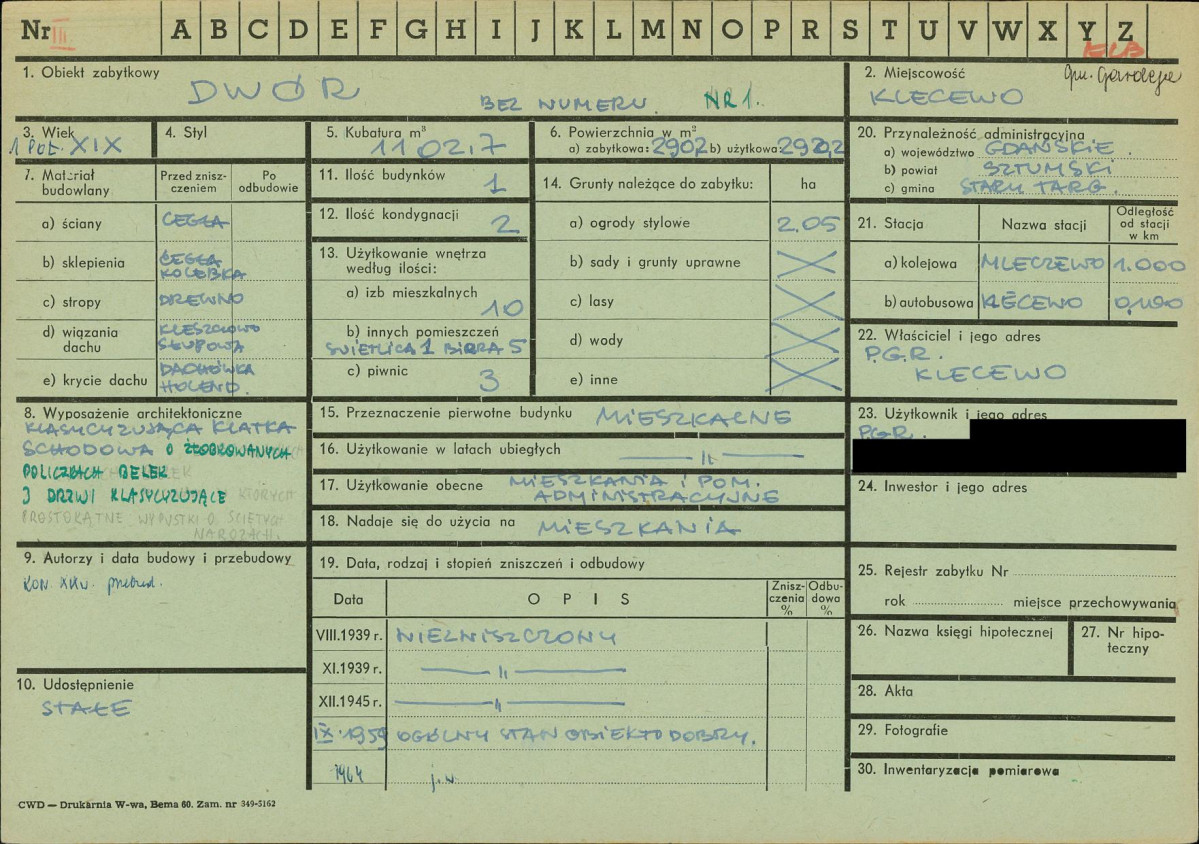 Nr III A B C D E F G H I J K L M N O P R S T U V W X Y Z
ELB
1. Obiekt zabytkowy
DWÓR BEZ NUMERU. NR 1.
2. Miejscowość gm. Gardeja
KLECEWO
3. Wiek
1 POŁ. XIX
4. Styl
5. Kubatura m³
11 02,7
6. Powierzchnia w m²
a) zabytkowa: 2902 b) użytkowa: 2902,2
7. Materiał budowlany
Przed zniszczeniem
Po odbudowie
a) ściany CEGŁA
b) sklepienia CEGŁA KOLEBKA
c) stropy DREWNO
d) wiązania dachu KLESZCZOWO SŁUPOWA
e) krycie dachu DACHÓWKA HOLEND.
11. Ilość budynków 1
12. Ilość kondygnacji 2
13. Użytkowanie wnętrza według ilości:
a) izb mieszkalnych 10
b) innych pomieszczeń
ŚWIETLICA 1 BIURA 5
c) piwnic 3
14. Grunty należące do zabytku: ha
a) ogrody stylowe 2.05
b) sady i grunty uprawne
c) lasy
d) wody
e) inne
20. Przynależność administracyjna
a) województwo GDAŃSKIE.
b) powiat SZTUMSKI
c) gmina STARY TARG.
21. Stacja
Nazwa stacji
Odległość od stacji w km
a) kolejowa MLECZEWO 1.000
b) autobusowa KLECEWO
22. Właściciel i jego adres
P.G.R.
KLECEWO
8. Wyposażenie architektoniczne
KLASYCYZUJĄCA KLATKA
SCHODOWA O ŻŁOBKOWANYCH
POLICZKACH BELEK
I DRZWI KLASYCYZUJĄCE KTÓRYCH
PROSTOKĄTNE WYPUSTKI O ŚCIĘTYCH
NAROŻACH.
15. Przeznaczenie pierwotne budynku MIESZKALNE
16. Użytkowanie w latach ubiegłych — " —
17. Użytkowanie obecne MIESZKANIA I POM.
ADMINISTRACYJNE
18. Nadaje się do użycia na MIESZKANIA
23. Użytkownik i jego adres
P.G.R.
24. Inwestor i jego adres
9. Autorzy i data budowy i przebudowy
19. Data, rodzaj i stopień zniszczeń i odbudowy
Data
OPIS
Zniszczenia %
Odbudowa %
VIII.1939 r. NIEZNISZCZONY
XI.1939 r. — " —
XII.1945 r. — " —
IX.1959 OGÓLNY STAN OBIEKTU DOBRY.
1964 j.w.
25. Rejestr zabytku Nr
rok miejsce przechowywania
26. Nazwa księgi hipotecznej
27. Nr hipoteczny
10. Udostępnienie
STAŁE
28. Akta
29. Fotografie
30. Inwentaryzacja pomiarowa
CWD — Drukarnia W-wa, Bema 60. Zam. nr 349-5162